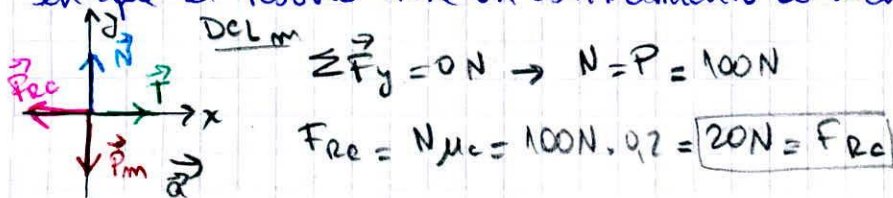 DCL m
y
N⃗
F⃗Rc
T⃗
x
P⃗m
a⃗
ΣF⃗y = 0 N → N = P = 100N
FRc = N μc = 100N . 0,2 = 20N = FRc